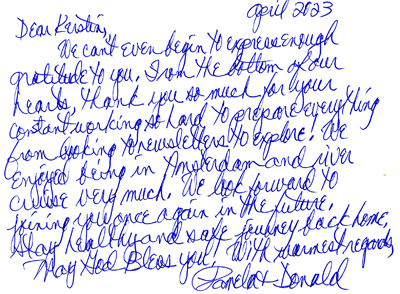 April 2023
Dear Kerstin,
We can't even begin to express enough
gratitude to you. From the bottom of our
hearts, thank you so much for your
constant working so hard to prepare everything
from booking to newsletters to explore. We
enjoyed being in Amsterdam and river
cruise very much. We look forward to
joining you once again in the future.
Stay healthy and safe journey back home,
May God Bless you! With warmest regards,
Pamela + Donald